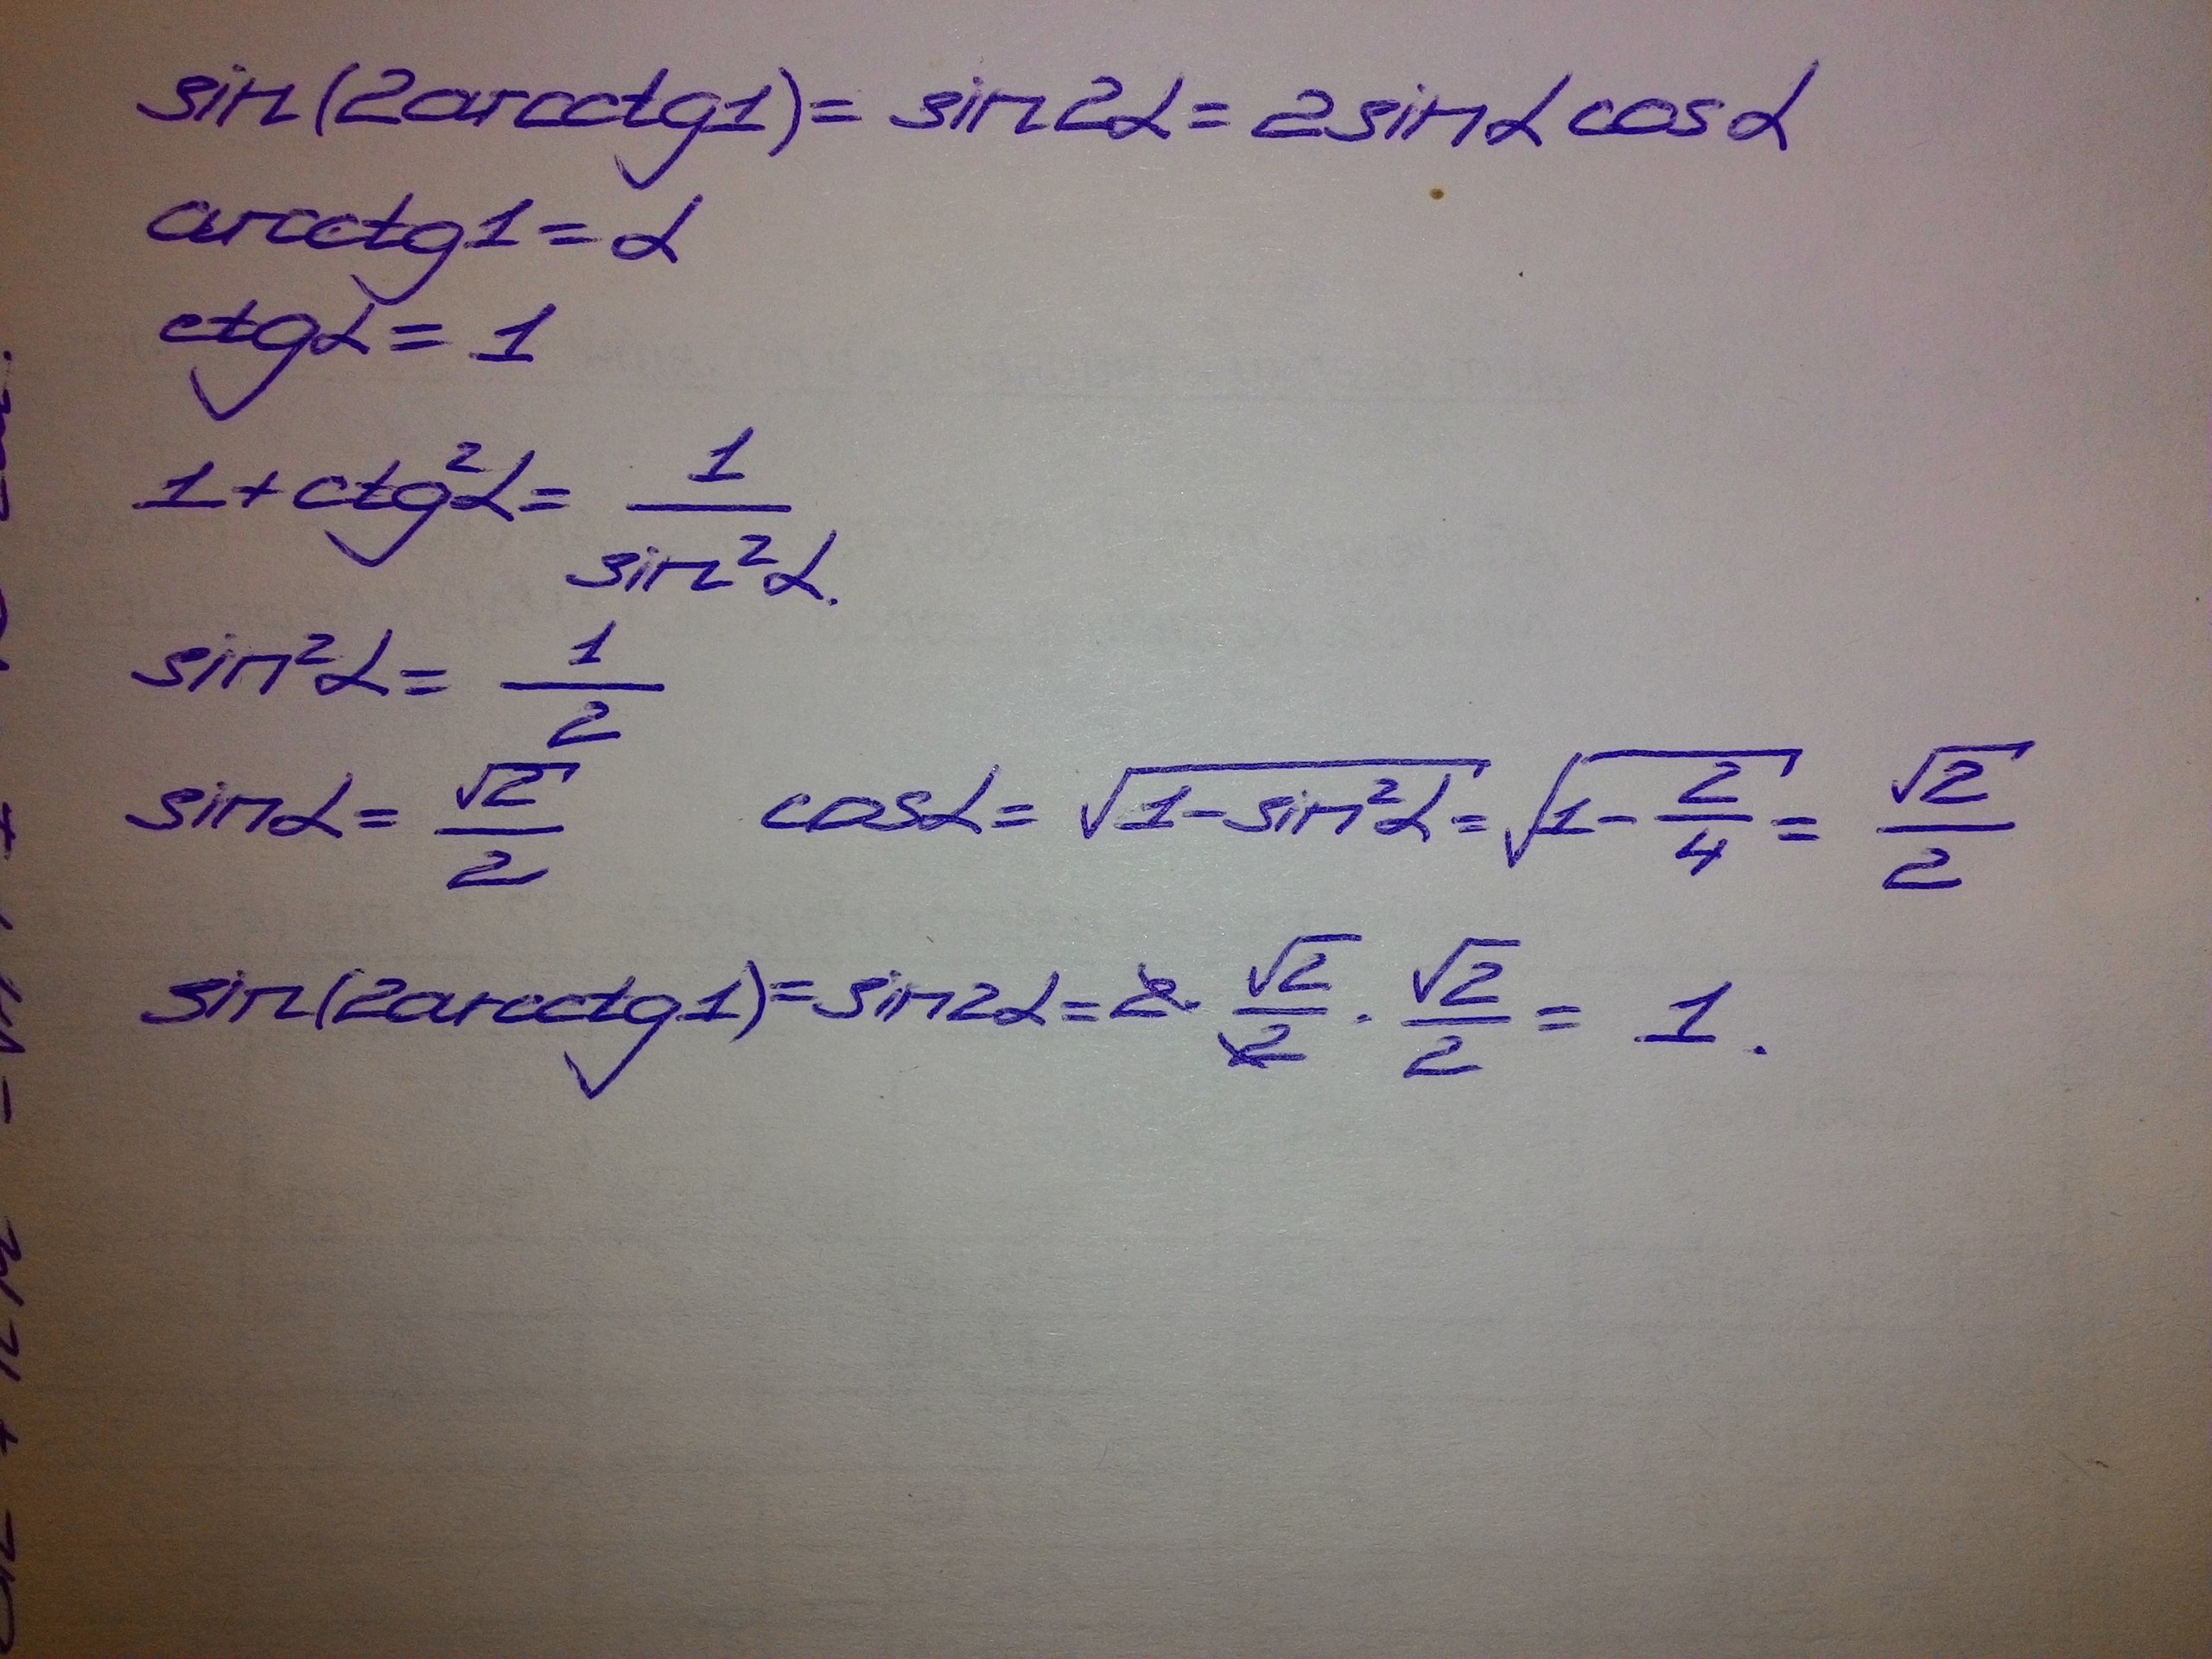 sin(2arcctg1)= sin2α= 2sinα cosα
arcctg1=α
ctgα= 1
1+ctg²α= 1/sin²α.
sin²α= 1/2
sinα= √2/2 cosα= √(1-sin²α)= √(1-2/4)= √2/2
sin(2arcctg1)=sin2α=2· √2/2 · √2/2 = 1.